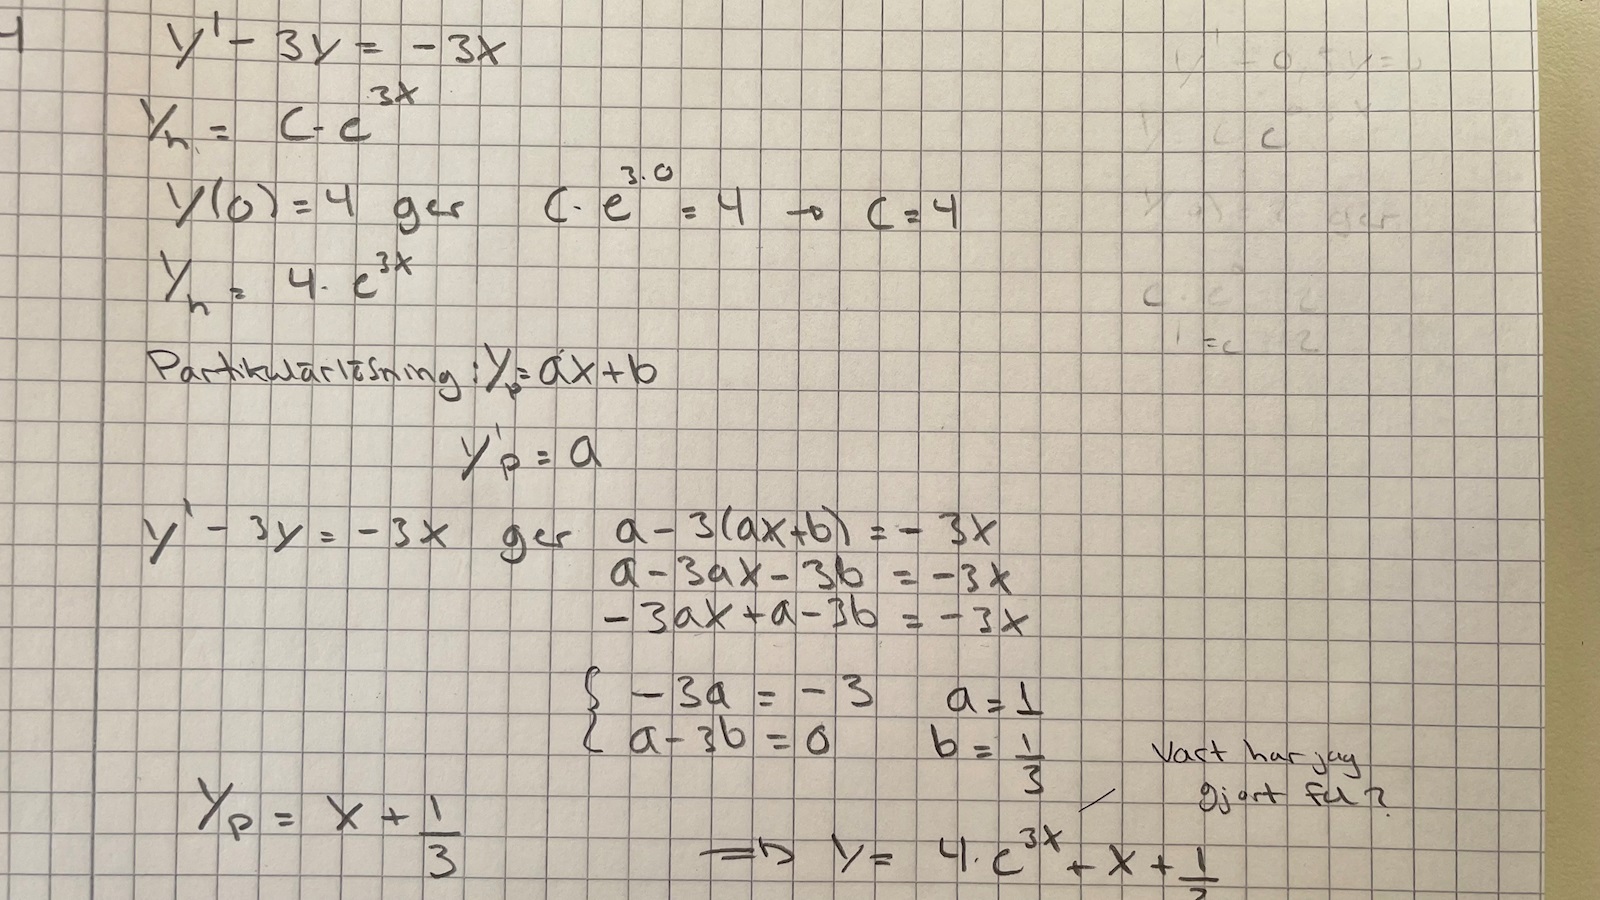 4
y' - 3y = -3x
y_h = C · e^{3x}
y(0) = 4 ger C · e^{3·0} = 4 → C = 4
y_h = 4 · e^{3x}
Partikulärlösning: y_p = ax + b
y'_p = a
y' - 3y = -3x ger a - 3(ax + b) = -3x
a - 3ax - 3b = -3x
-3ax + a - 3b = -3x
{ -3a = -3 a = 1
a - 3b = 0 b = 1/3
Vart har jag
gjort fel?
y_p = x + 1/3
⇒ y = 4 · e^{3x} + x + 1/3